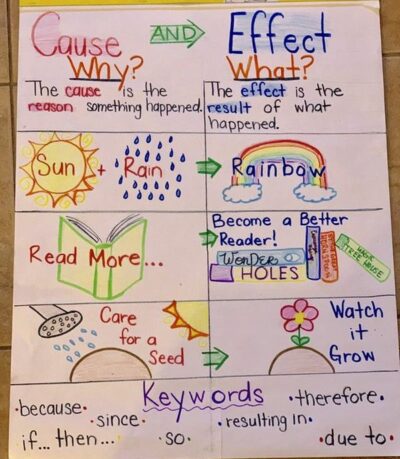 Cause AND Effect
Why? What?
The cause is the
reason something happened.
The effect is the
result of what
happened.
Sun + Rain
Rainbow
Read More...
Become a Better
Reader!
WONDER
HOLES
TREE HOUSE
Care
for a
Seed
Watch
it
Grow
Keywords
because
since
if... then...
so
resulting in
therefore
due to